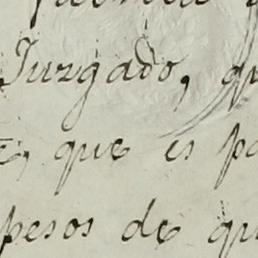 Juzgado, qu
que es pa
pesos de qu